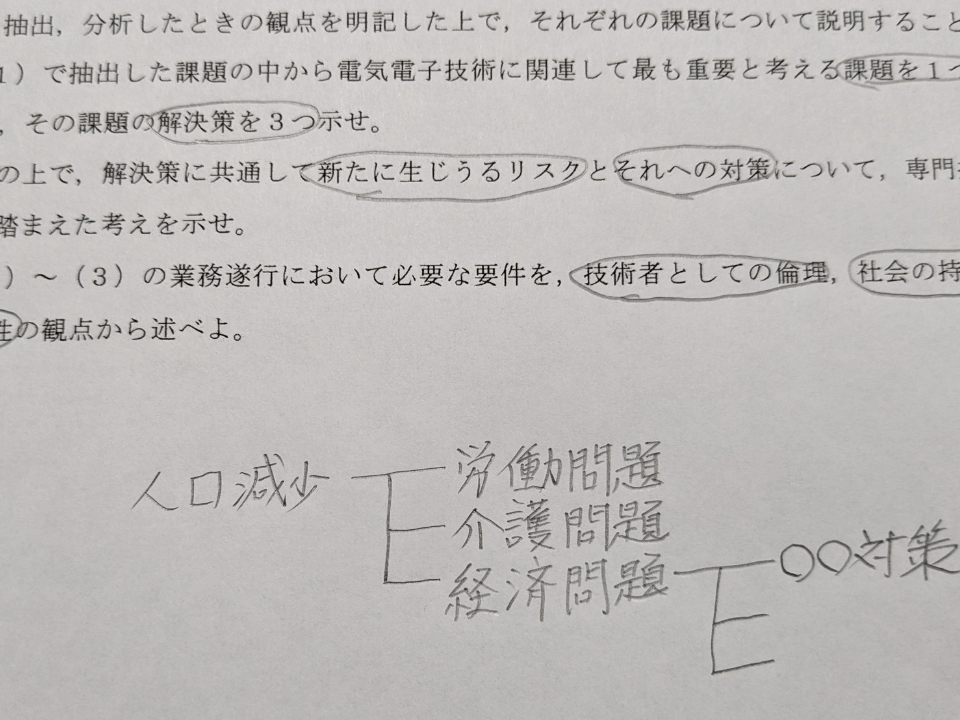 抽出，分析したときの観点を明記した上で，それぞれの課題について説明すること
1）で抽出した課題の中から電気電子技術に関連して最も重要と考える課題を1つ
，その課題の解決策を3つ示せ。
の上で，解決策に共通して新たに生じうるリスクとそれへの対策について，専門
踏まえた考えを示せ。
）～（3）の業務遂行において必要な要件を，技術者としての倫理，社会の持
性の観点から述べよ。
人口減少
労働問題
介護問題
経済問題
○○対策